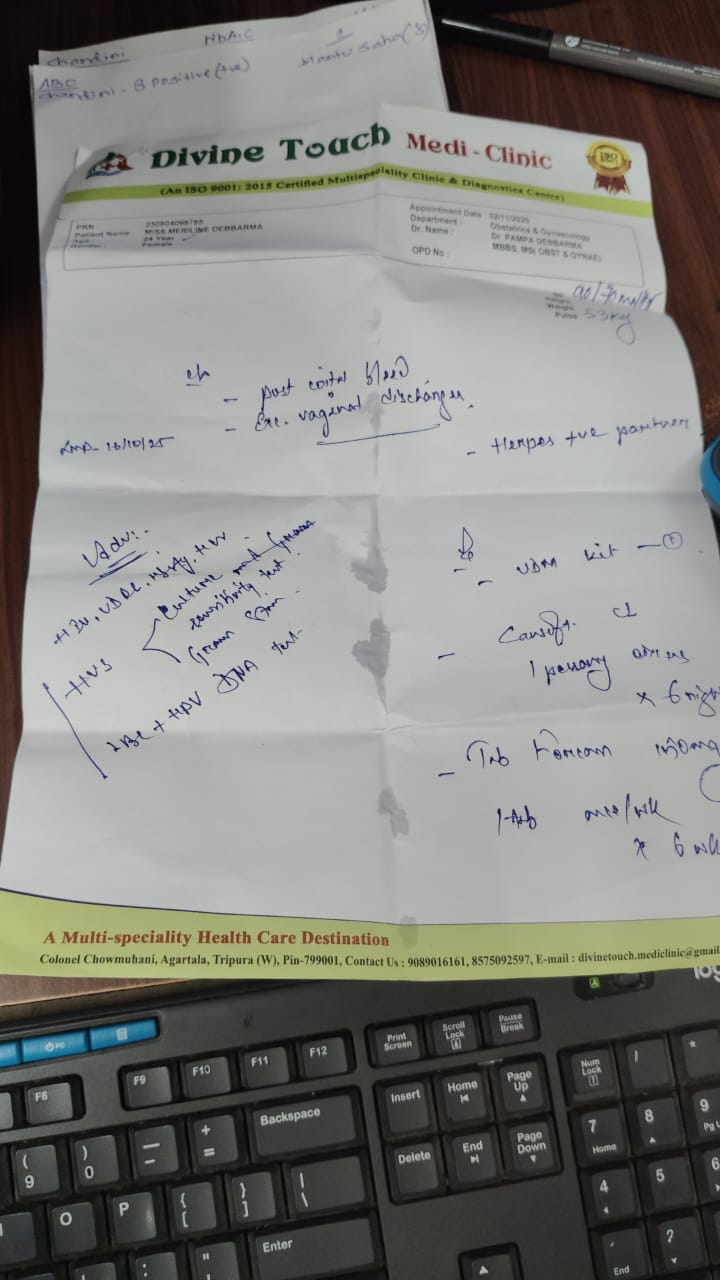 HbA1C
Chandini
Mantu Saha (8)
ABC
Chandini - B Positive (+ve)
Divine Touch Medi - Clinic
(An ISO 9001: 2015 Certified Multispeciality Clinic & Diagnostics Centre)
ISO
PRN
Patient Name : MISS MERILINE DEBBARMA
Age : 24 Year
Gender : Female
Appointment Date : 02/11/2025
Department : Obstetrics & Gynaecology
Dr. Name : Dr. PAMPA DEBBARMA
MBBS, MS( OBST & GYNAE)
OPD No :
Height
Weight
Pulse
53kg
- post coital bleed
- Exc. vaginal discharges.
LMP- 16/10/25
- Herpes +ve partner
Adv:-
- VDM kit - 1
HVS
Culture and
sensitivity test.
Gram Stain
+ HPV DNA test
1 pessary
x 6 nigh
- Tab
1 tab once/wk
x 6 wk
A Multi-speciality Health Care Destination
Colonel Chowmuhani, Agartala, Tripura (W), Pin-799001, Contact Us : 9089016161, 8575092597, E-mail : divinetouch.mediclinic@gmail
PC
A
log
F8
F9
F10
F11
F12
Print Screen
Scroll Lock
Pause Break
Backspace
Insert
Home
Page Up
Num Lock
/
*
Delete
End
Page Down
7 Home
8
9 Pg U
( 9
) 0
+ =
O
P
{ [
} ]
| \
4
5
6
Enter
End